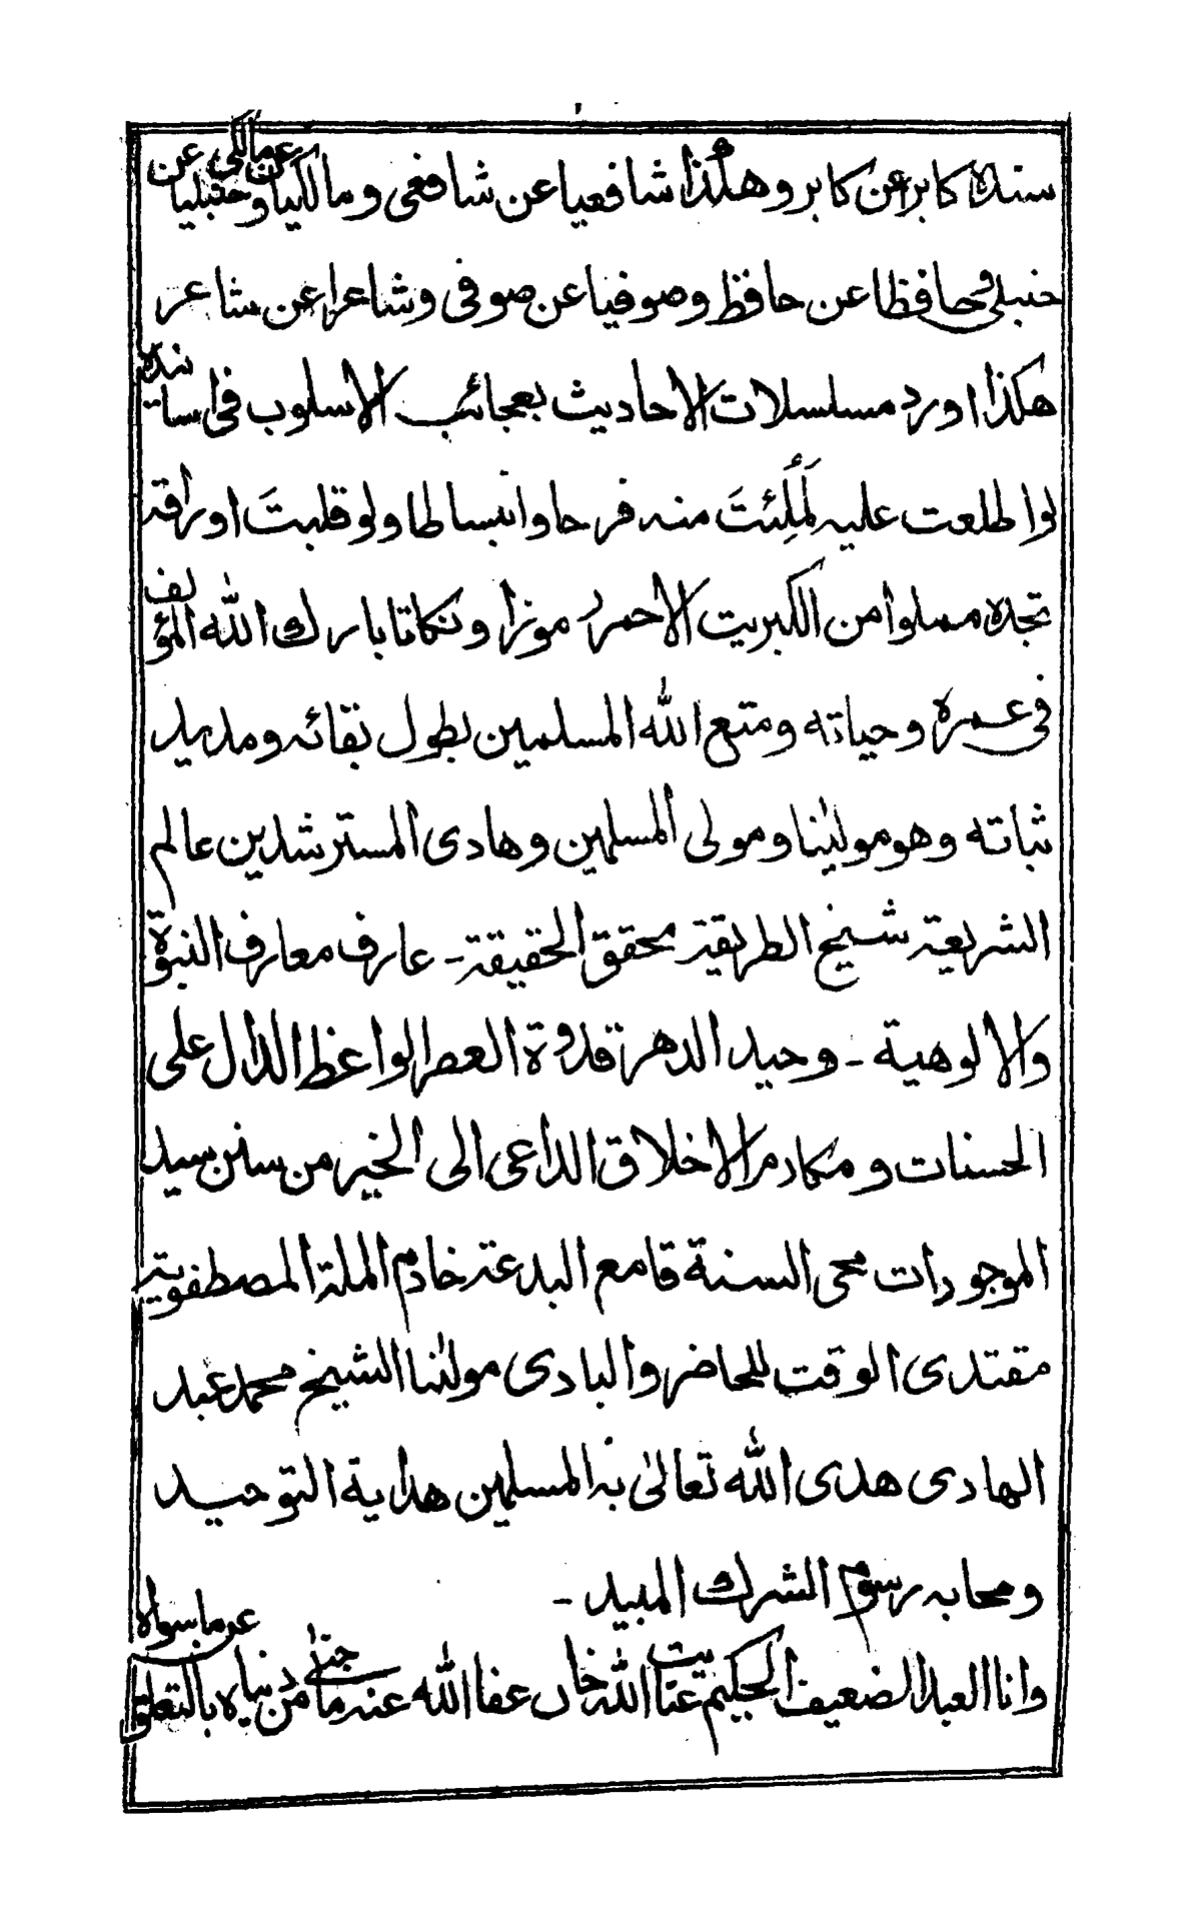 سنده كابرا عن كابر وهكذا شافعيا عن شافعى ومالكيا عن مالكى وحنبليا عن
حنبلى وحافظا عن حافظ وصوفيا عن صوفى وشاعرا عن شاعر
هكذا اورد مسلسلات الاحاديث بعجائب الاسلوب فى اسانيده
لو اطلعت عليه لَمُلِئتَ منه فرحا وانبساطا ولو قلبتَ اوراقه
تجده مملوا من الكبريت الاحمر رموزا ونكاتا بارك الله المؤلف
فى عمره وحياته ومتع الله المسلمين بطول بقائه ومديد
ثباته وهو مولٰينا ومولى المسلمين وهادى المسترشدين عالم
الشريعة شيخ الطريقة محقق الحقيقة - عارف معارف النبوة
والالوهية - وحيد الدهر قدوة العصر الواعظ الدال على
الحسنات ومكارم الاخلاق الداعى الى الخير من سنن سيد
الموجودات محى السنة قامع البدعة خادم الملة المصطفوية
مقتدى الوقت للحاضر والبادى مولٰنا الشيخ محمد عبد
الهادى هدى الله تعالىٰ به المسلمين هداية التوحيد
ومحا به رسوم الشرك المبيد -
وانا العبد الضعيف الحكيم عنايت الله خاں عفا الله عنه ما جنىٰ من دنياه بالتعلق عن ما سواه